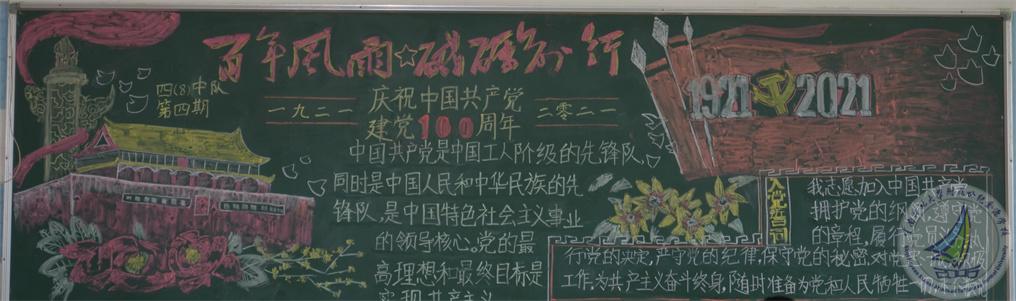 百年风雨☆砥砺前行
四(8)中队
第四期
一九二一
庆祝中国共产党
建党100周年
二零二一
1921 2021
中国共产党是中国工人阶级的先锋队,
同时是中国人民和中华民族的先
锋队,是中国特色社会主义事业
的领导核心。党的最
高理想和最终目标是
实现共产主义
入党誓词
我志愿加入中国共产党
拥护党的纲领,遵守党
的章程,履行
行党的决定,严守党的纪律,保守党的秘密,对党
工作,为共产主义奋斗终身,随时准备为党和人民牺牲一